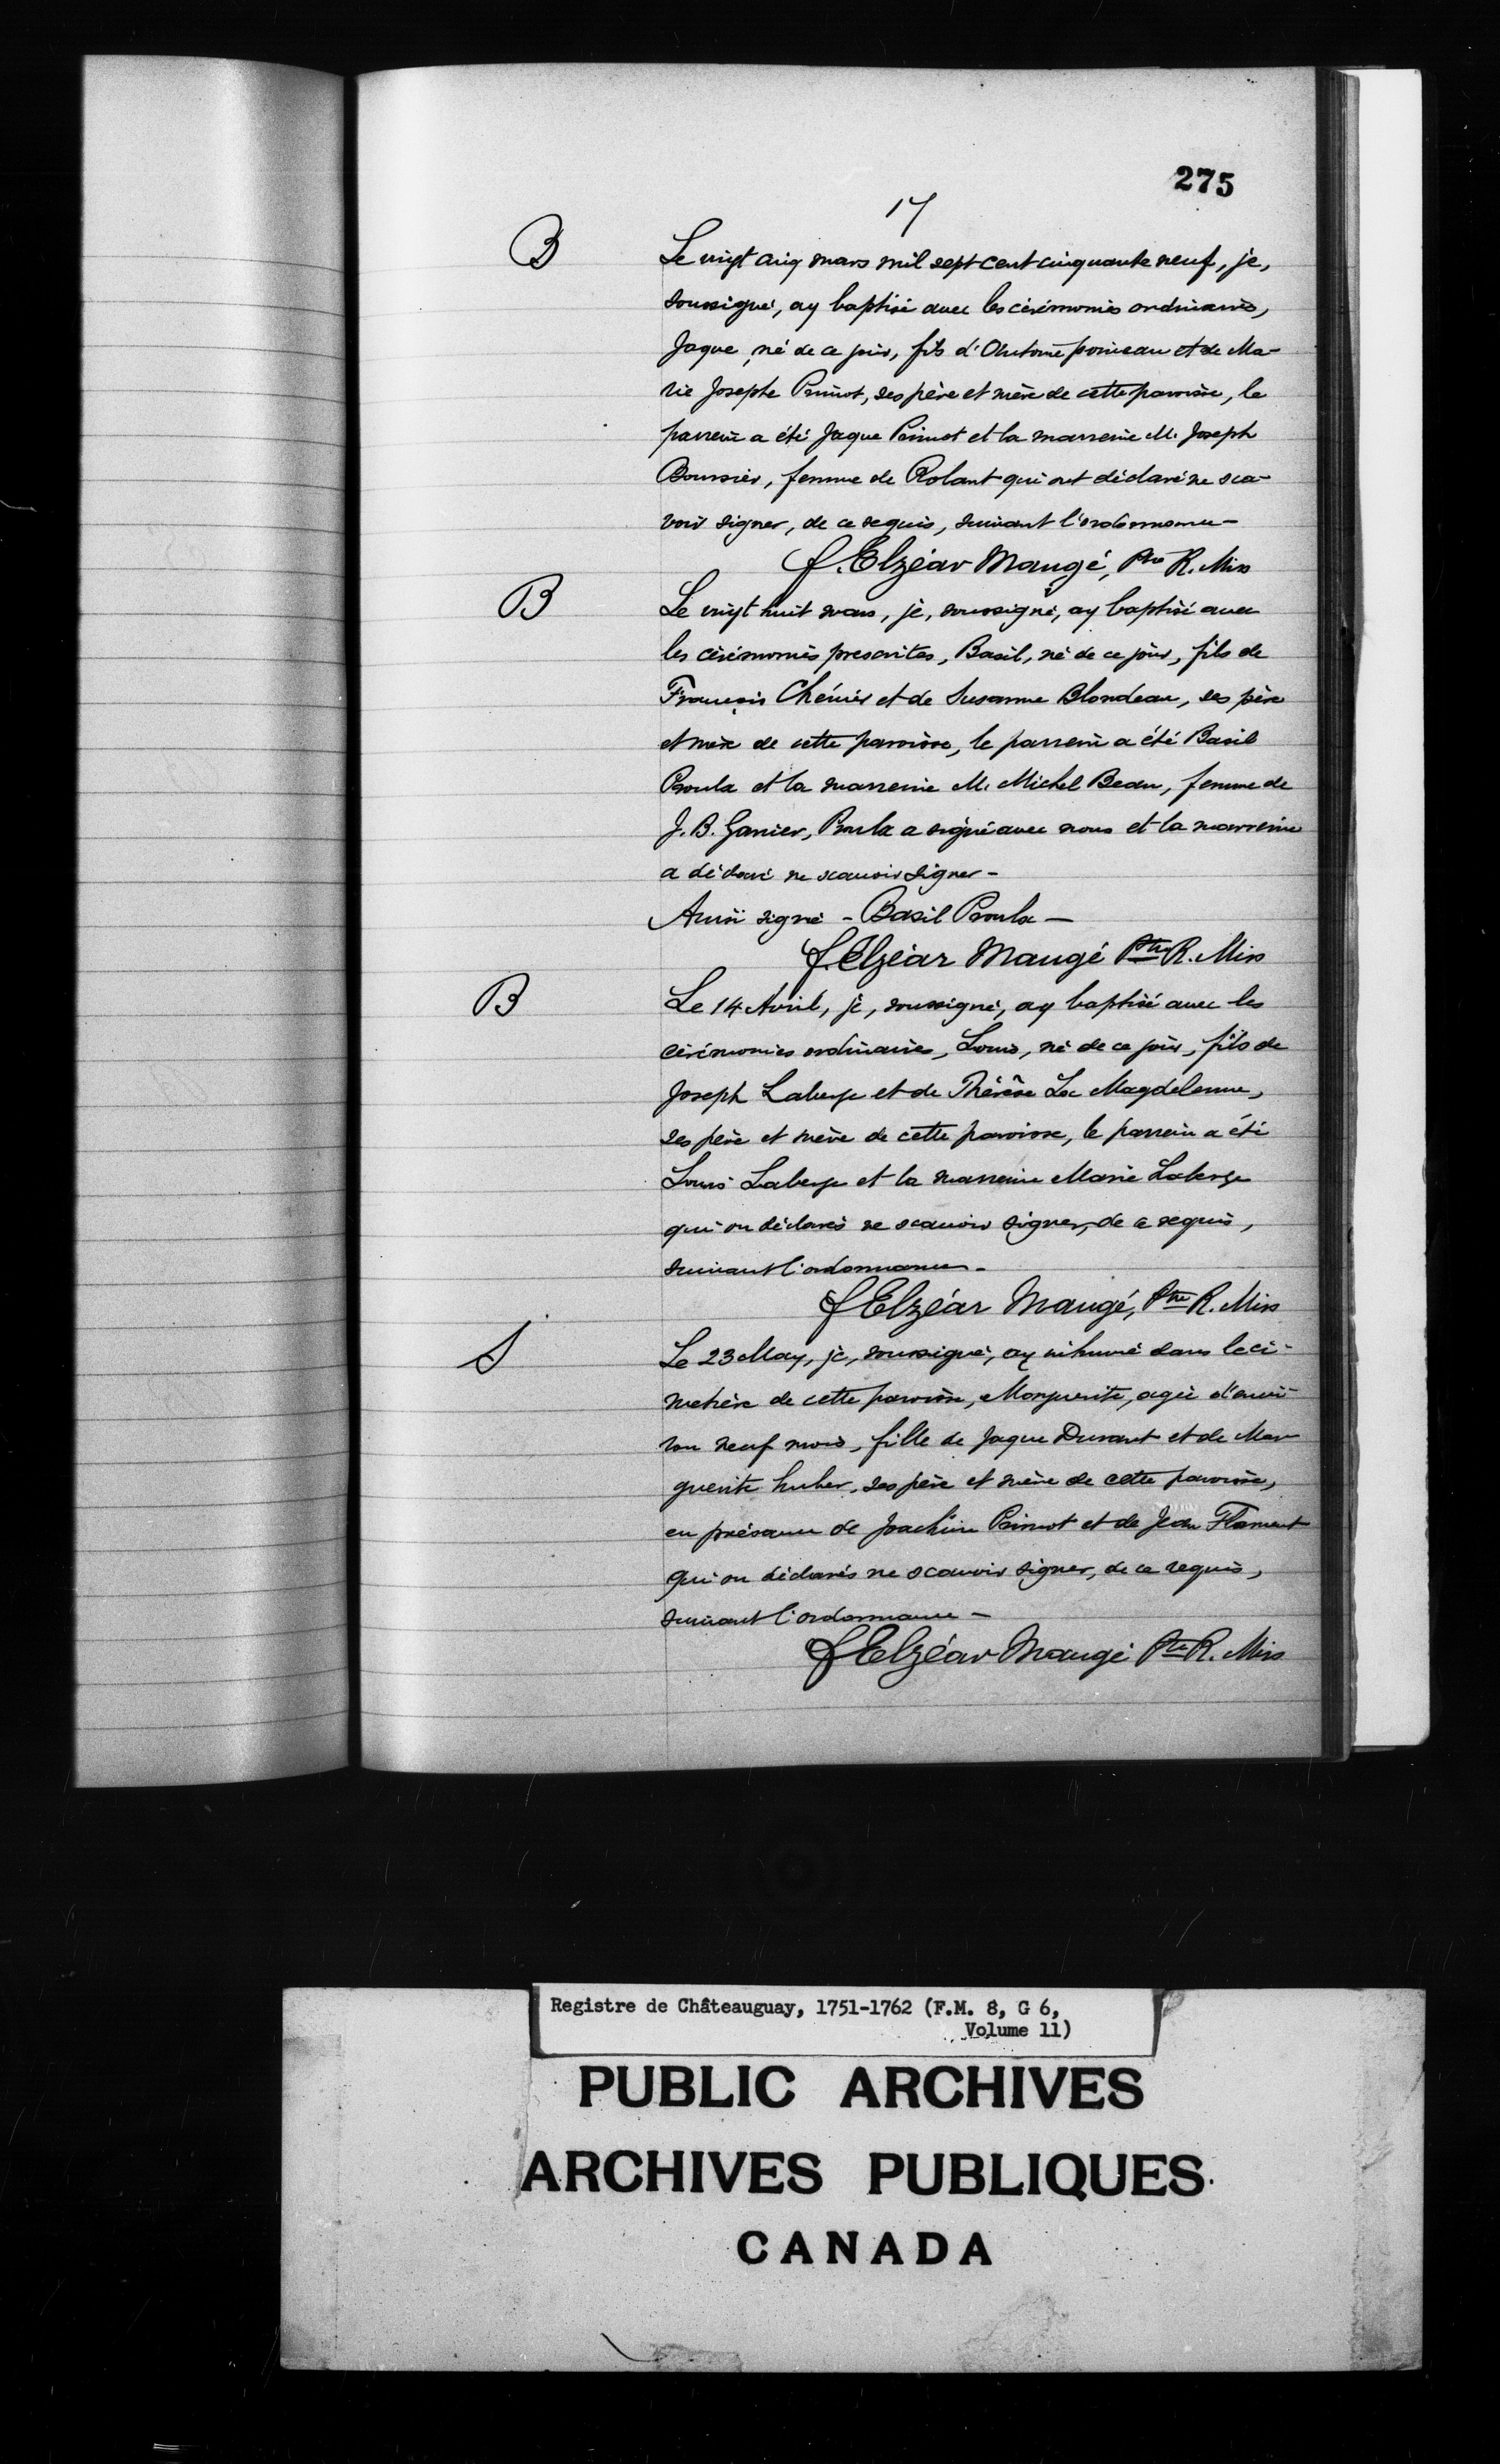 275
17
B
Le vingt cinq mars mil sept cent cinquante neuf, je,
soussigné, ay baptisé avec les cérémonies ordinaires,
Jaque, né de ce jour, fils d'Antoine poineau et de Ma-
rie Josephe Primot, ses père et mère de cette paroisse, le
parrein a été Jaque Primot et la marreine M. Joseph
Boursier, femme de Rolant qui ont déclaré ne sca-
voir signer, de ce requis, suivant l'ordonnance -
f. Elzéar Maugé, Ptre R. Miss
B
Le vingt huit mars, je, soussigné, ay baptisé avec
les cérémonies prescrites, Basil, né de ce jour, fils de
François Chénier et de Susanne Blondeau, ses père
et mère de cette paroisse, le parrein a été Basil
Proulx et la marreine M. Michel Beau, femme de
J. B. Garier, Proulx a signé avec nous et la marreine
a déclaré ne scauoir signer -
Ainsi signé - Basil Proulx -
f. Elzéar Maugé Ptre R. Miss
B
Le 14 Avril, je, soussigné, ay baptisé avec les
cérémonies ordinaires, Louis, né de ce jour, fils de
Joseph Laberge et de Thérèse La Magdelenne,
ses père et mère de cette paroisse, le parrein a été
Louis Laberge et la marreine Marie Laberge
qui on déclarés ne scauoir signer, de ce requis,
suivant l'ordonnance -
f Elzéar Maugé, Ptre R. Miss
S
Le 23 May, je, soussigné, ay inhumé dans le ci-
metière de cette paroisse, Marguerite, agée d'envi-
ron neuf mois, fille de Jaque Durant et de Mar-
guerite huber, ses père et mère de cette paroisse,
en présance de Joachim Primot et de Jean Flament
qui on déclarés ne scauoir signer, de ce requis,
suivant l'ordonnance -
f Elzéar Maugé Ptre R. Miss
Registre de Châteauguay, 1751-1762 (F.M. 8, G 6,
Volume 11)
PUBLIC ARCHIVES
ARCHIVES PUBLIQUES
CANADA